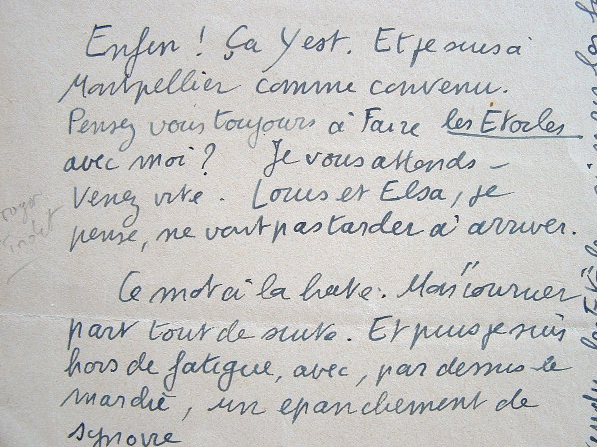 Enfin ! Ça Y est. Et je suis à
Montpellier comme convenu.
Pensez vous toujours à Faire les Étoiles
avec moi ? Je vous attends –
Venez vite. Louis et Elsa, je
pense, ne vont pas tarder à arriver.
Ce mot à la hate. Mon "courrier"
part tout de suite. Et puis je suis
hors de fatigue, avec, par dessus le
marché, un epanchement de
synovie